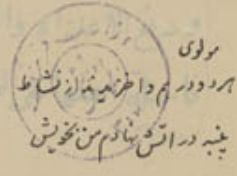 مولوی
هر دو در هم داطرند از نشاط
پنبه در آتش نهادم من بخویش